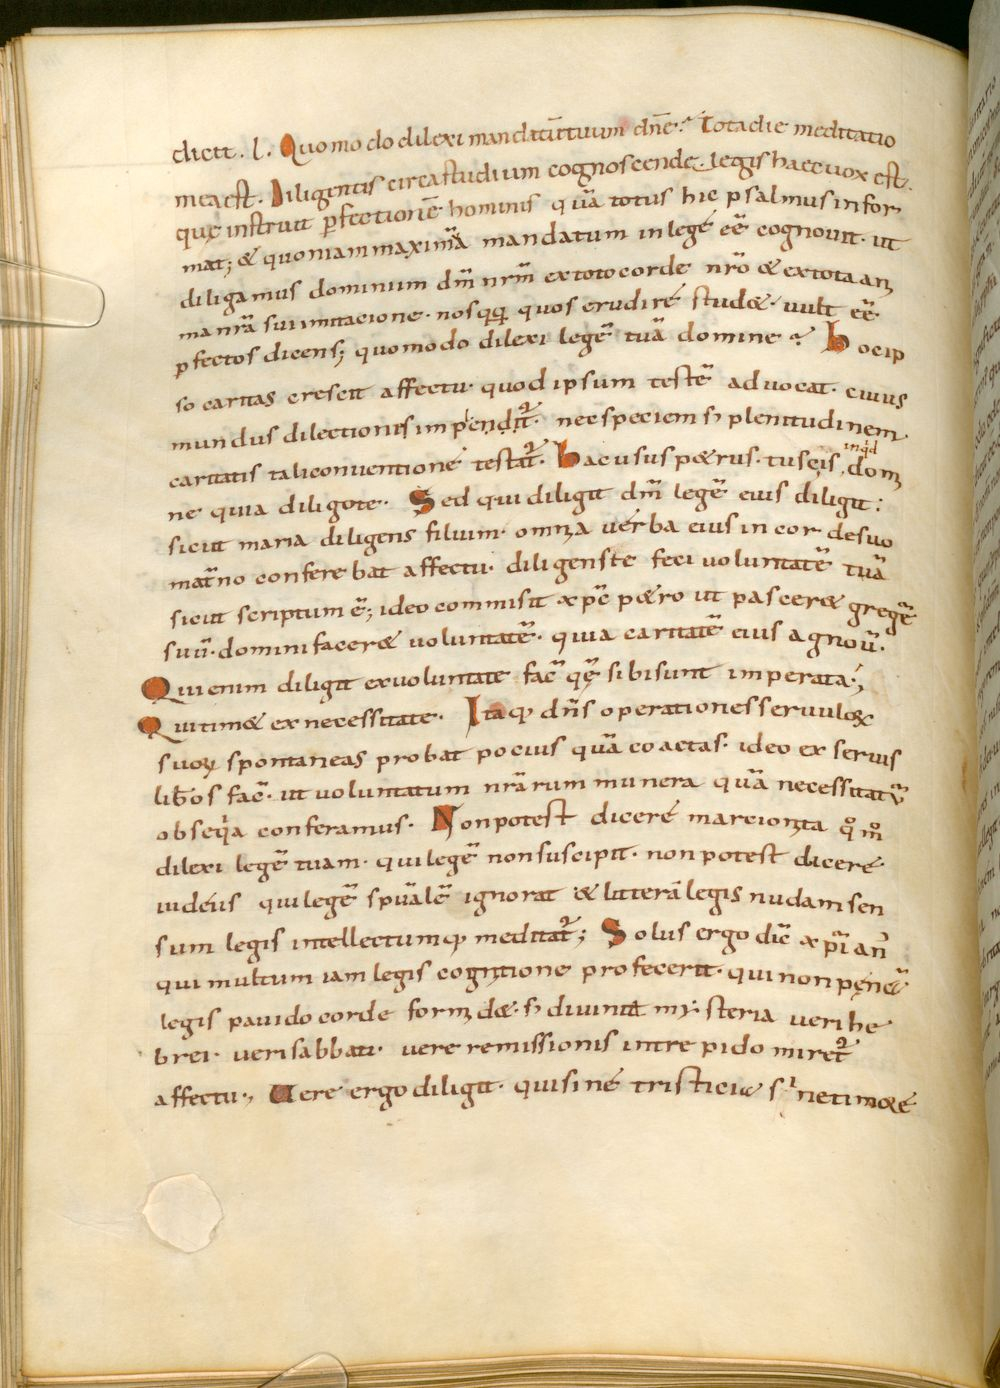 dicit. l. Quomodo dilexi mandatū tuum dn̄e? Tota die meditatio
mea est. Diligentis circa studium cognoscende legis haec uox est.
quę instruit ꝑfectionē hominis quā totus hic psalmus infor
mat; & quoniam maximā mandatum in lege eē cognouit. ut
diligamus dominum dm̄ nrm̄ ex toto corde nrō & ex tota ani
ma nrā sui imitacione. nosq̨ quos erudire stud&. uult eē
ꝑfectos dicens; quomodo dilexi legē tuā domine? Hoc ip
so caritas crescit affectu. quod ipsum testē aduocat. cuius
mundus dilectionis impendit̄. nec speciem s; plenitudinem
caritatis tali conuentione testat̄. Hac usus p&rus. tu scis inq̇d dom
ne quia diligo te. Sed qui diligit dm̄ legē eius diligit:
sicut maria diligens filium. omnia uerba eius in corde suo
mat̄no conferebat affectu. diligens te feci uoluntatē tuā
sicut scriptum ē; ideo commisit xp̄c p&ro ut pascer& gregē
suū. domini facer& uoluntatē. quia caritatē eius agnouī.
Qui enim diligit ex uoluntate fac̄ quę sibi sunt imperata;
Qui tim& ex necessitate. Itaq; dn̄s operationes seruuloꝝ
suoꝝ spontaneas probat pocius quā coactas. ideo ex seruis
lib̄os fac̄. ut uoluntatum nrārum munera quā necessitatū
obseq̇a conferamus. Non potest dicere marcionita qͦ mͦ
dilexi legē tuam. qui legē non suscipit. non potest dicere
iudeus qui legē spūalē ignorat & litterā legis nudam sen
sum legis intellectumq; meditat̄; Solus ergo dic̄ xp̄ianꝰ
qui multum iam legis cognitione profecerit. qui non pęne
legis pauido corde formid&. s; diuinit mysteria ueri he
brei. ueri sabbati. uere remissionis intrepido miret̄
affectu., Uere ergo diligit. qui sine tristicia s ne timore